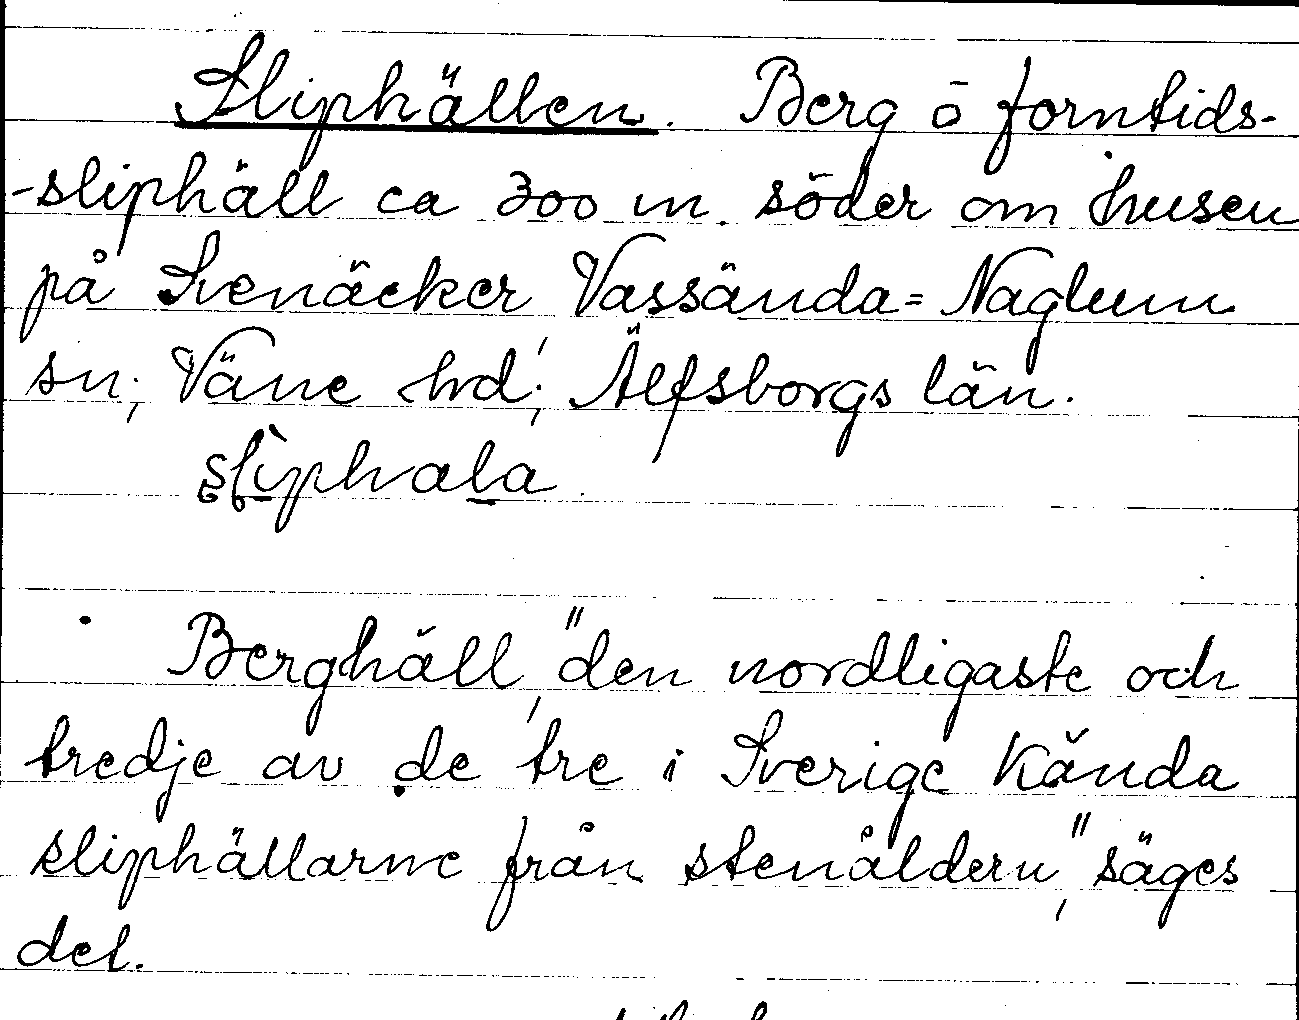 Sliphällen. Berg o forntids-
-sliphäll ca 300 m. söder om husen
på Svenäcker, Vassända=Naglum
sn; Väne hrd; Älfsborgs län.
sliphala
Berghäll, "den nordligaste och
tredje av de tre i Sverige kända
sliphällarne från stenåldern", säges
det.